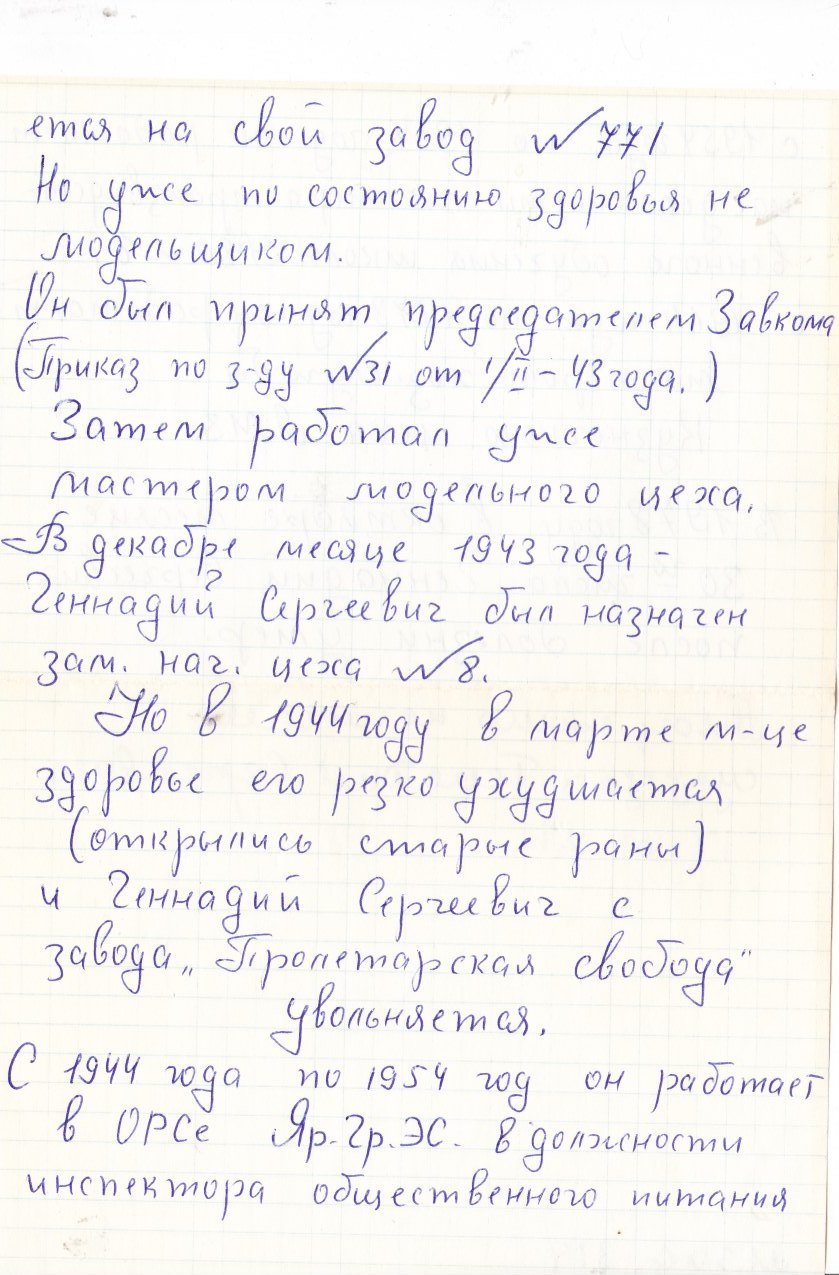 ется на свой завод № 771
Но уже по состоянию здоровья не
модельщиком.
Он был принят председателем Завкома
(Приказ по з-ду №31 от 1/II – 43 года.)
Затем работал уже
мастером модельного цеха.
В декабре месяце 1943 года –
Геннадий Сергеевич был назначен
зам. нач. цеха №8.
Но в 1944 году в марте м-це
здоровье его резко ухудшается
(открылись старые раны)
и Геннадий Сергеевич с
завода „Пролетарская свобода"
увольняется.
С 1944 года по 1954 год он работает
в ОРСе Яр.Гр.ЭС. в должности
инспектора общественного питания